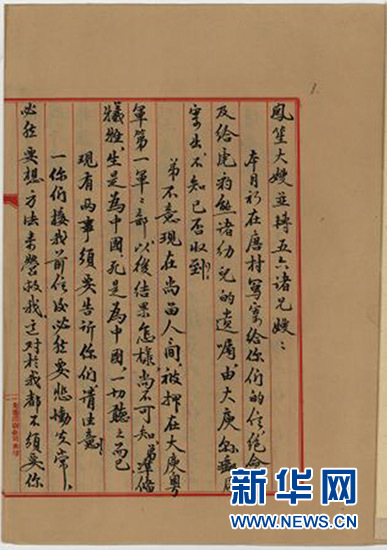 鳳笙大嫂並轉五六諸兄嫂：
本月初在唐村寫寄給你們的信、絕命
及給虎豹熊諸幼兒的遺囑由大庾縣郵局
寄出，不知已否收到？
弟不意現在尚留人間，被押在大庾粤
軍第一軍軍部以後結果怎樣，尚不可知，弟準備
犧牲，生是為中國，死是為中國，一切聽之而已
現有兩事須要告訴你們，請注意！
一你們接我前信後必然要悲慟失常，
必然要想方法來營救我，這對於我都不須要你
1.
新华网
NEWS.CN